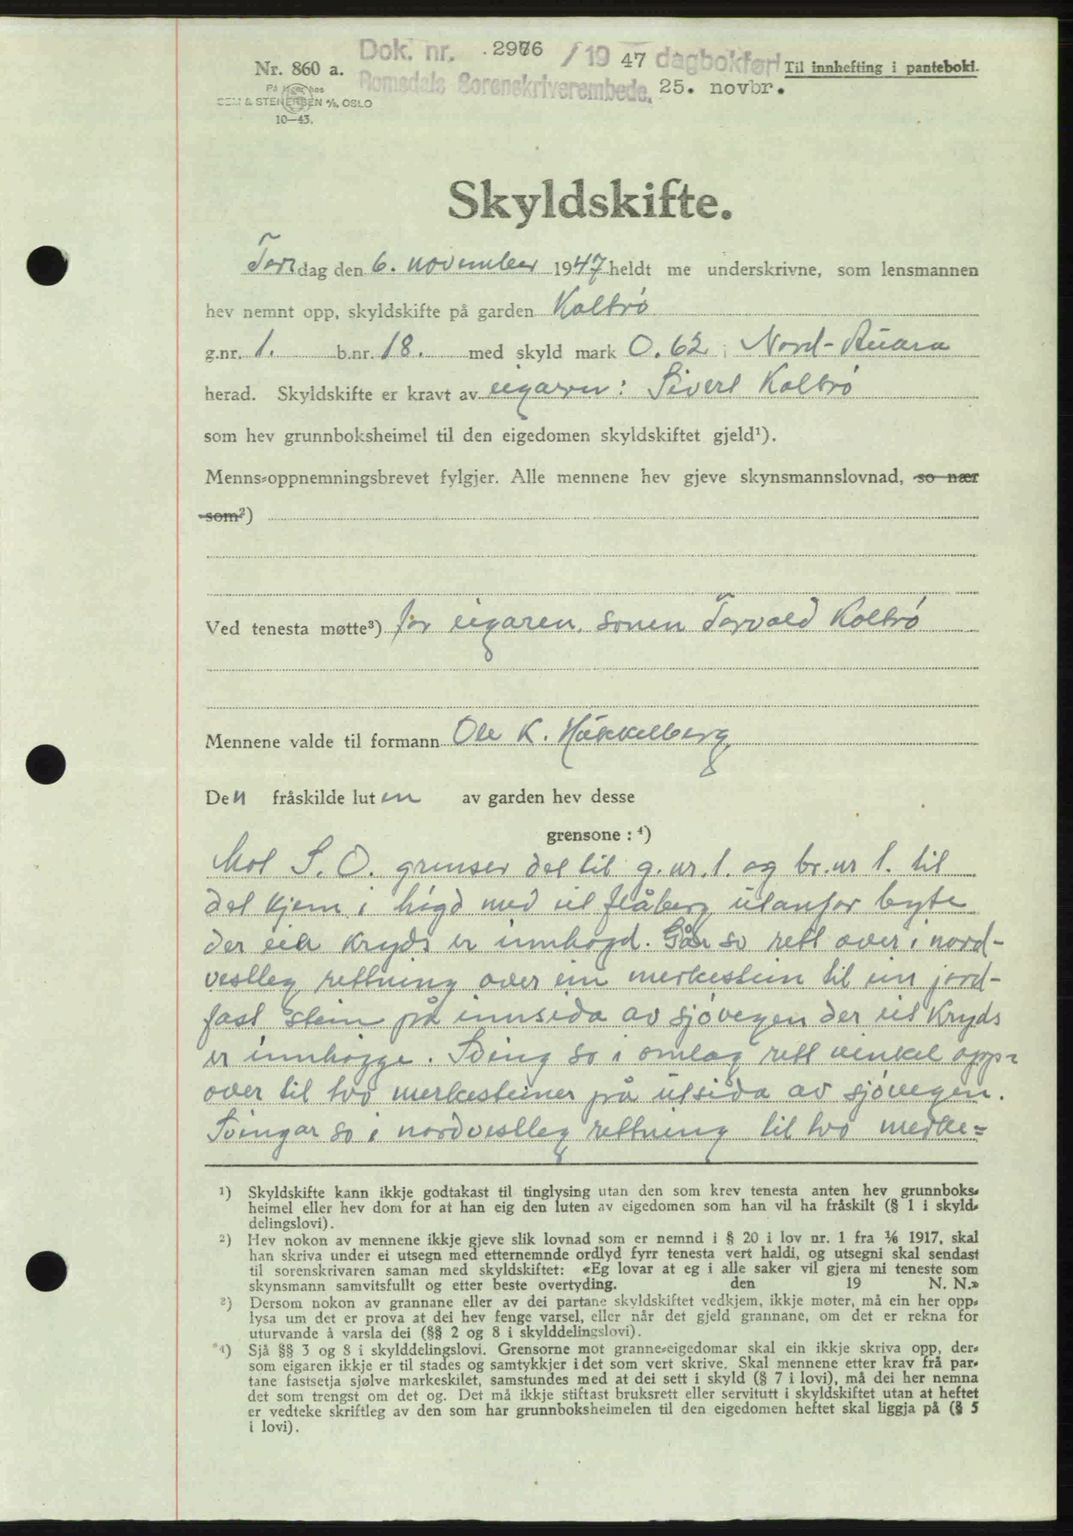 Dok. nr. 2976 / 1947 dagbokført
Nr. 860 a.
Til innhefting i pantebok.
Romsdals Sorenskriverembede, 25. novbr.
SEM & STENERSEN A/S, OSLO
10—43.
Skyldskifte.
Torsdag den 6. november 1947 heldt me underskrivne, som lensmannen
hev nemnt opp, skyldskifte på garden Koltrø
g.nr. 1. b.nr. 18. med skyld mark 0.62 i Nord-Aukra
herad. Skyldskifte er kravt av eigaren: Sivert Koltrø
som hev grunnboksheimel til den eigedomen skyldskiftet gjeld¹).
Menns-oppnemningsbrevet fylgjer. Alle mennene hev gjeve skynsmannslovnad, so nær
som²)
Ved tenesta møtte³) for eigaren, sonen Torvald Koltrø
Mennene valde til formann Ole K. Häkkelberg
Den fråskilde luten av garden hev desse
grensone: ⁴)
Mot S. O. grenser det til g.nr. 1. og br.nr 1. til
det kjem i högd med eit flåberg utanfor byte
der eit kryds er innhogd. Går so rett over i nord-
vestleg rettning over ein merkestein til ein jord-
fast stein på innsida av sjövegen der eit kryds
er innhogge. Sving so i omlag rett vinkel opp=
over til tvo merkesteiner på utsida av sjövegen.
Svingar so i nordvestleg rettning til tvo merke=
¹) Skyldskifte kann ikkje godtakast til tinglysing utan den som krev tenesta anten hev grunnboks-
heimel eller hev dom for at han eig den luten av eigedomen som han vil ha fråskilt (§ 1 i skyld-
delingslovi).
²) Hev nokon av mennene ikkje gjeve slik lovnad som er nemnd i § 20 i lov nr. 1 fra 1/6 1917, skal
han skriva under ei utsegn med etternemnde ordlyd fyrr tenesta vert haldi, og utsegni skal sendast
til sorenskrivaren saman med skyldskiftet: «Eg lovar at eg i alle saker vil gjera mi teneste som
skynsmann samvitsfullt og etter beste overtyding. den 19 N. N.»
³) Dersom nokon av grannane eller av dei partane skyldskiftet vedkjem, ikkje møter, må ein her opp-
lysa um det er prova at dei hev fenge varsel, eller når det gjeld grannane, om det er rekna for
uturvande å varsla dei (§§ 2 og 8 i skylddelingslovi).
⁴) Sjå §§ 3 og 8 i skylddelingslovi. Grensorne mot granne-eigedomar skal ein ikkje skriva opp, der-
som eigaren ikkje er til stades og samtykkjer i det som vert skrive. Skal mennene etter krav frå par-
tane fastsetja sjølve markeskilet, samstundes med at dei sett i skyld (§ 7 i lovi), må dei her nemna
det som trengst om det og. Det må ikkje stiftast bruksrett eller servitutt i skyldskiftet utan at heftet
er vedteke skriftleg av den som har grunnboksheimelen til den eigedomen heftet skal liggja på (§ 5
i lovi).